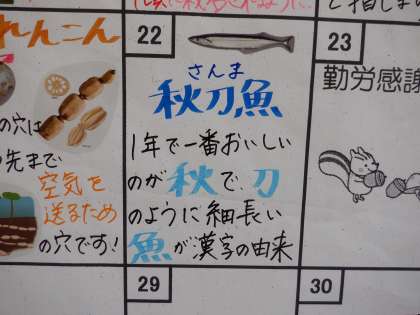 れんこん
の穴は
の先まで
空気を
送るため
の穴です!
22
さんま
秋刀魚
1年で一番おいしい
のが秋で、刀
のように細長い
魚が漢字の由来
23
勤労感謝
29
30